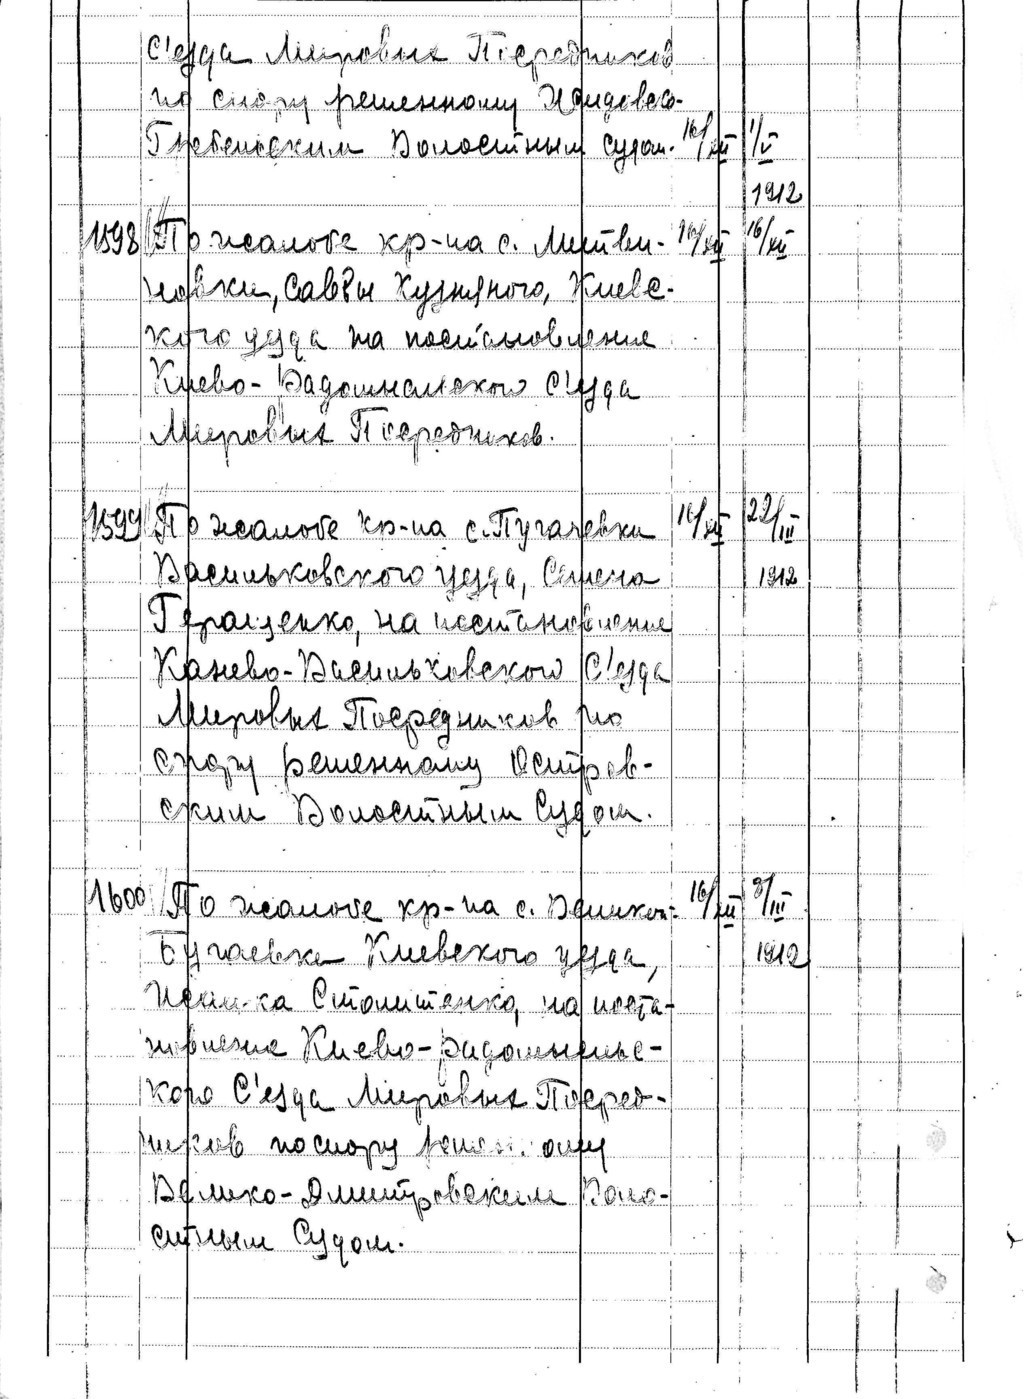 С'езда Мировых Посредников
по спору решенному
Гребенским Волостным судом. 16/XII 1/V
1912
1598 По жалобе кр-на с. Литви- 16/XII 16/XII
новки, Саввы Кузняного, Киевс-
кого уезда на постановление
Киево-Радомысльского С'езда
Мировых Посредников.
1599 По жалобе кр-на с. Пугачевки 16/XII 22/III
Васильковского уезда, Семена 1912
Геращенко, на постановление
Канево-Васильковского С'езда
Мировых Посредников по
спору решенному Островс-
ским Волостным Судом.
1600 По жалобе кр-на с. Великой- 16/XII 3/III
Бугаевки Киевского уезда, 1912
Исаака Столитенко, на поста-
новление Киево-Радомысльс-
кого С'езда Мировых Посред-
ников по спору решенному
Велико-Дмитровским Воло-
стным Судом.